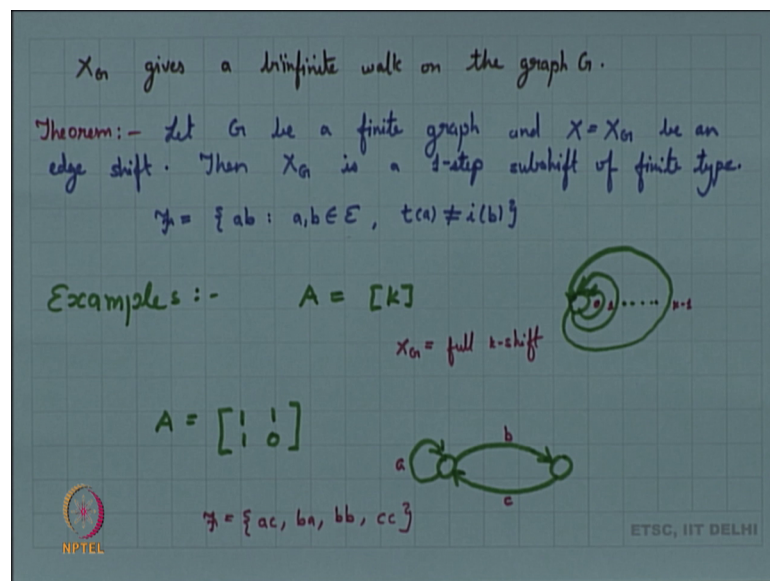 X_G gives a bi'infinite walk on the graph G.
Theorem:- Let G be a finite graph and X = X_G be an
edge shift. Then X_G is a 1-step subshift of finite type.
𝓕 = {ab : a,b ∈ ℰ, t(a) ≠ i(b)}
Examples :- A = [k]
0 1 ..... k-1
X_G = full k-shift
A = [1 1
1 0]
b
a
c
𝓕 = {ac, ba, bb, cc}
NPTEL
ETSC, IIT DELHI